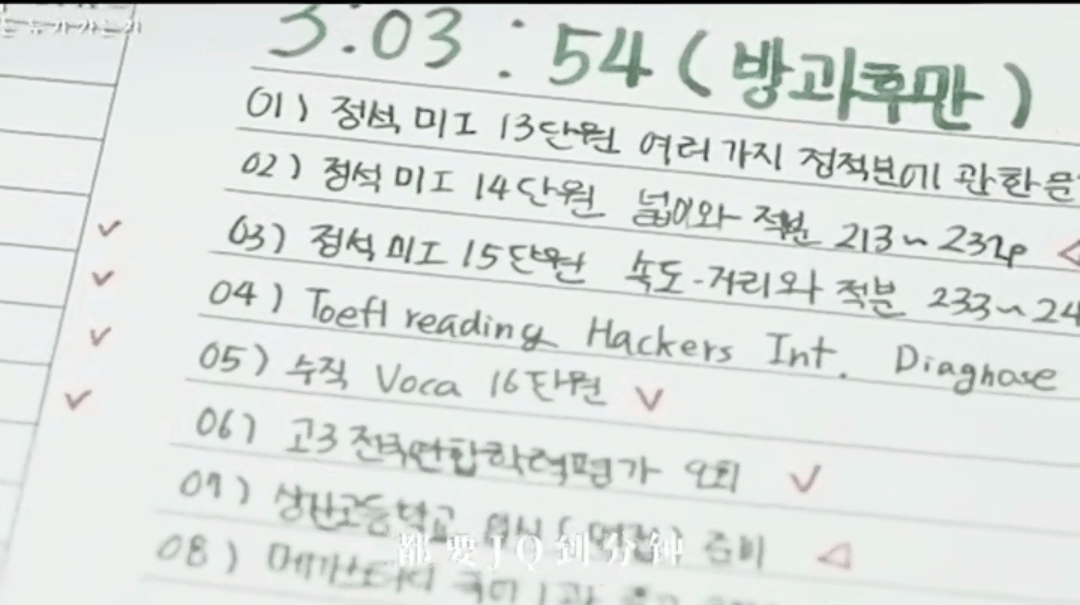 3:03:54 (방과후만)
01) 정석 미I 13단원 여러가지 정적분에 관한 문
02) 정석 미I 14단원 넓이와 적분 213~232p
03) 정석 미I 15단원 속도-거리와 적분 233~24
04) Toefl reading Hackers Int. Diagnose
05) 수직 Voca 16단원
06) 고3 전국연합학력평가 2회
07) 상산고등학교 준비
08) 메가스터디 국어 1관
都要JQ到分钟